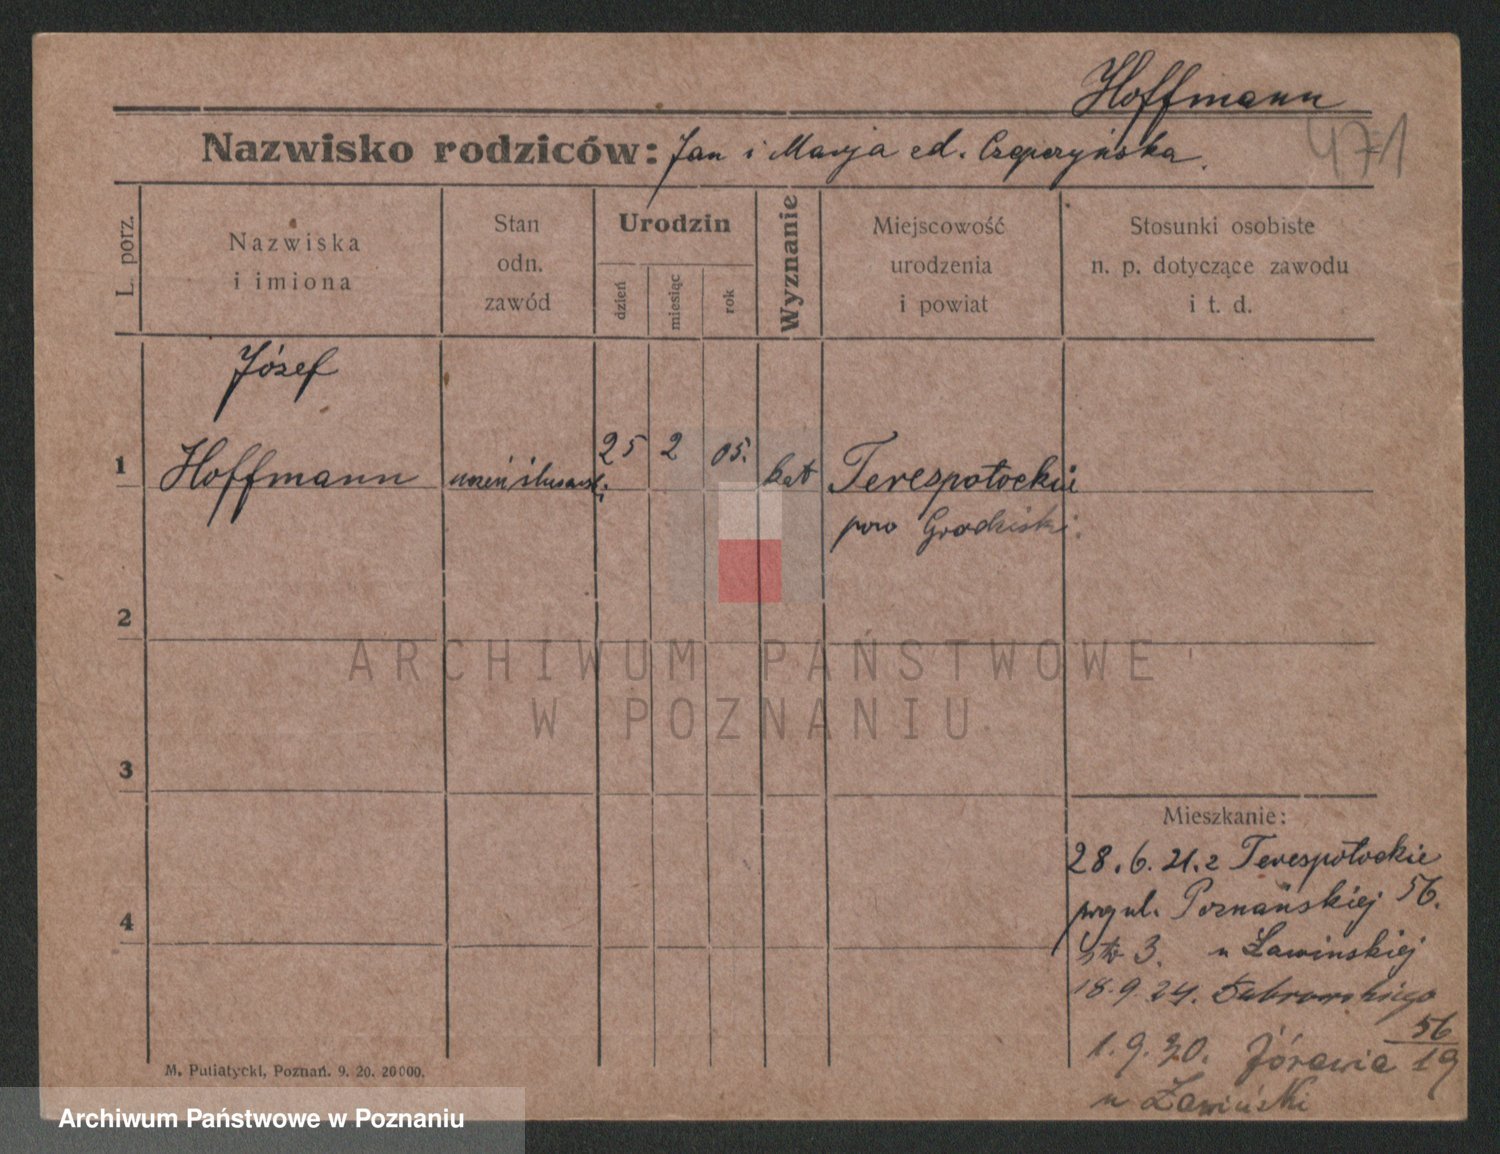 Hoffmann
471
Nazwisko rodziców: Jan i Marja
L. porz.
Nazwiska
i imiona
Stan
odn.
zawód
Urodzin
dzień
miesiąc
rok
Wyznanie
Miejscowość
urodzenia
i powiat
Stosunki osobiste
n. p. dotyczące zawodu
i t. d.
Józef
1 Hoffmann uczeń 25 2 05. kat Terespotockie
pow Grodziski.
2
ARCHIWUM PAŃSTWOWE
W POZNANIU
3
Mieszkanie:
28.6.21. z Terespotockie
ul. Poznańskiej 56.
3. u Ławińskiej
18.9.24. Dąbrowskiego
56
1.9.30. Żórawia 19
u Ławiński
4
M. Putiatycki, Poznań. 9. 20. 20000.
Archiwum Państwowe w Poznaniu